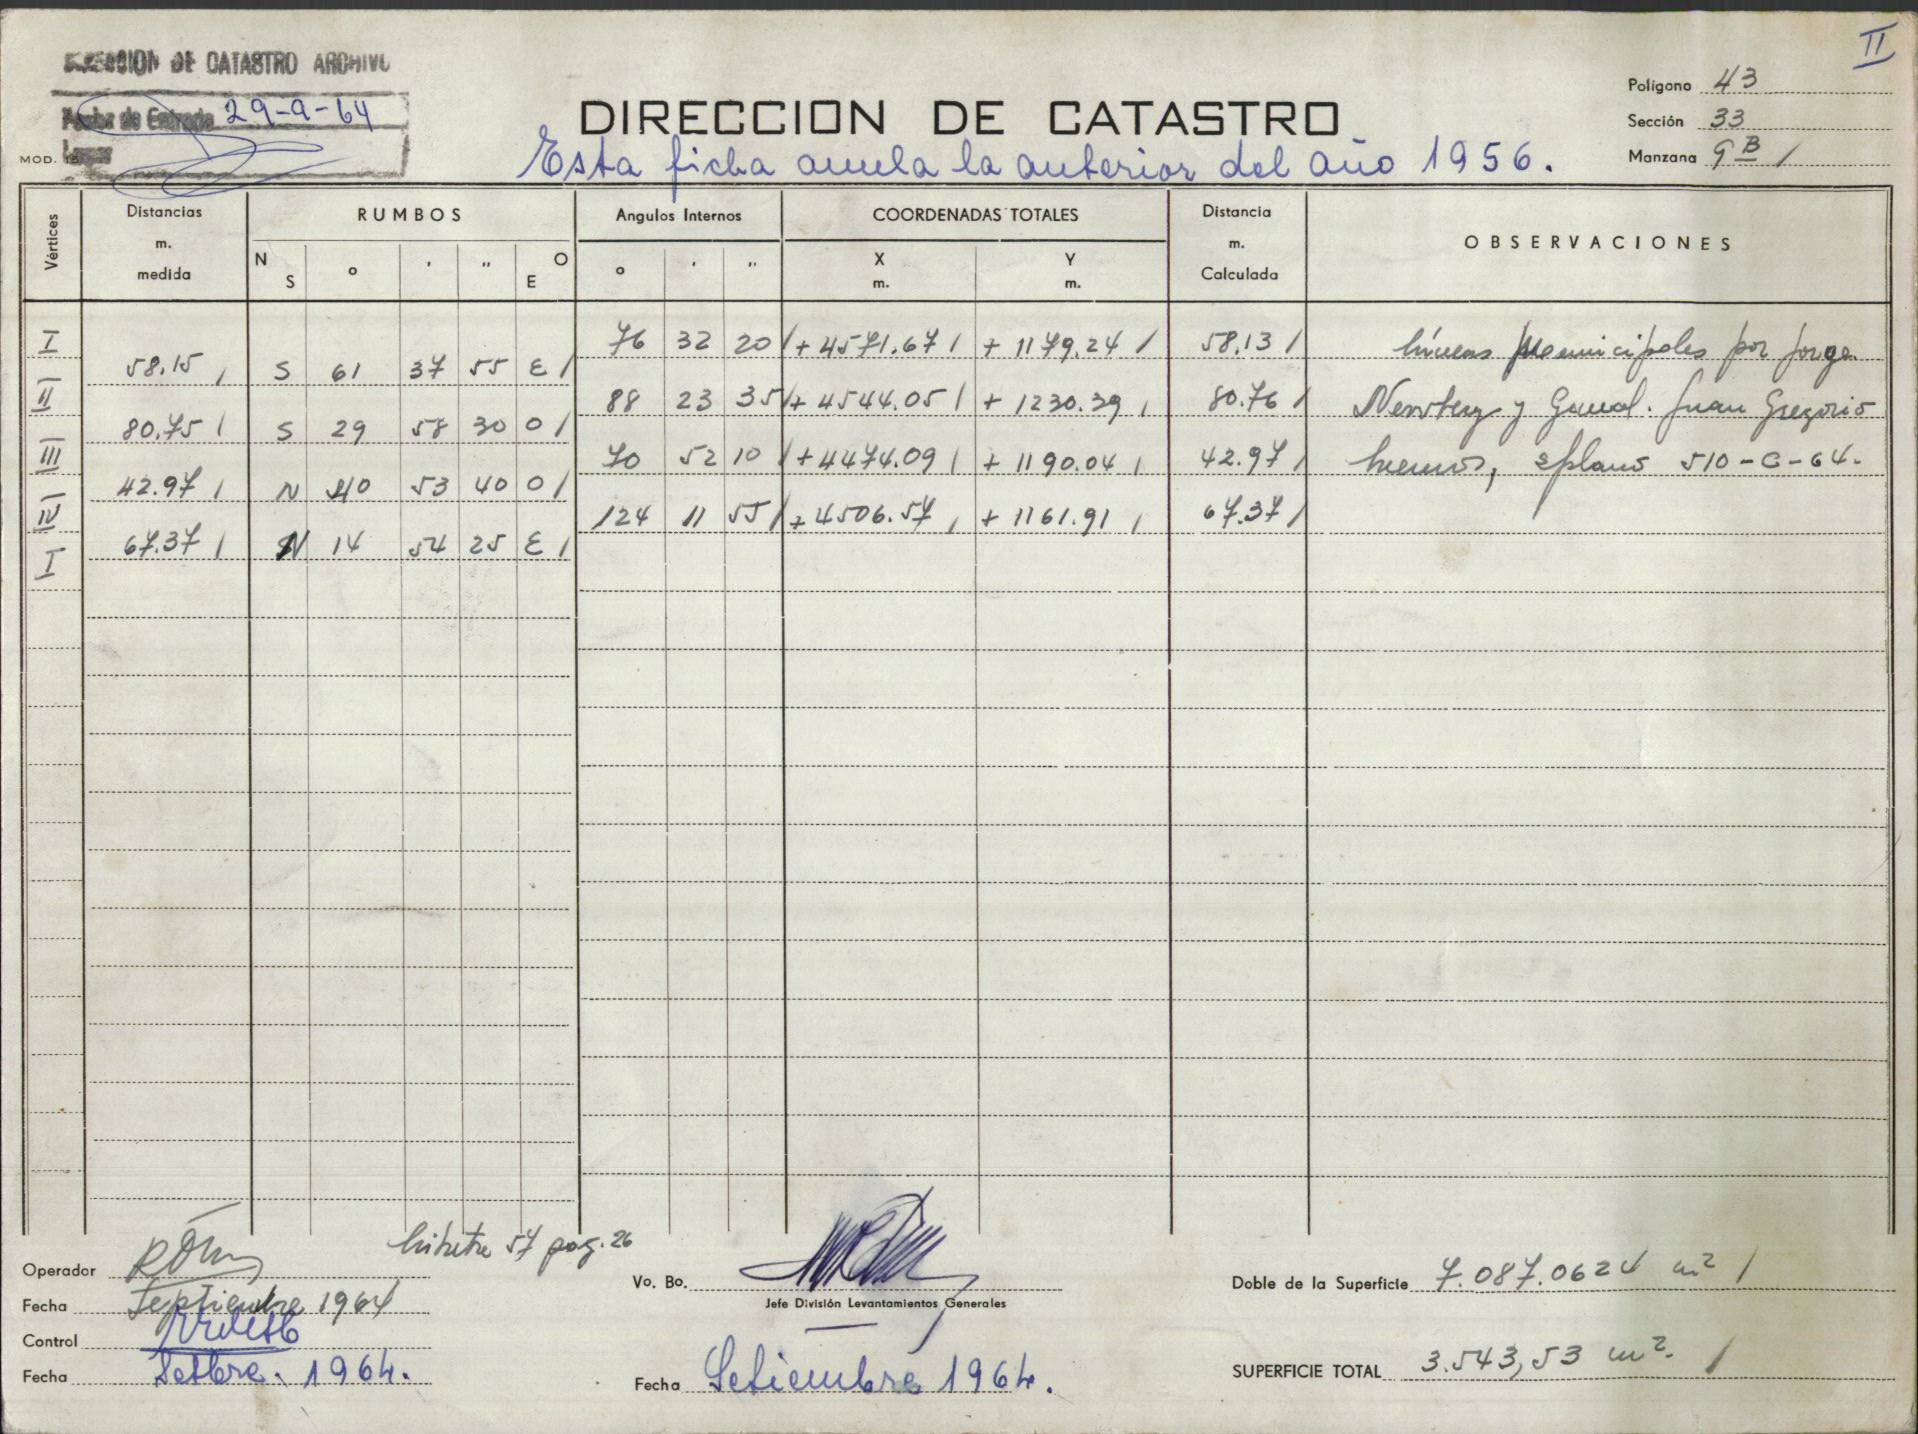 II
DIRECCION DE CATASTRO ARCHIVO
Fecha de Entrada 29-9-64
MOD. 15
DIRECCION DE CATASTRO
Esta ficha anula la anterior del año 1956.
Polígono 43
Sección 33
Manzana 9 B /
Vértices Distancias m. medida RUMBOS Angulos Internos COORDENADAS TOTALES Distancia m. Calculada OBSERVACIONES
N S ° ' " O E ° ' " X m. Y m.
I 76 32 20 / + 4571.67 / + 1179.24 / 58.13 / Líneas Municipales por Jorge
58.15 / S 61 37 55 E /
II 88 23 35 / + 4544.05 / + 1230.39 / 80.76 / Newbery y Granal. Juan Gregorio
80.75 / S 29 58 30 O /
III 70 52 10 / + 4474.09 / + 1190.04 / 42.97 / Lemos, s/plano 510-C-64.
42.97 / N 40 53 40 O /
IV 124 11 55 / + 4506.57 / + 1161.91 / 67.37 /
67.37 / N 14 54 25 E /
I
Libreta 57 pag. 26
Operador
Fecha Septiembre 1964
Control
Fecha Setbre. 1964.
Vo. Bo.
Jefe División Levantamientos Generales
Fecha Setiembre 1964.
Doble de la Superficie 7.087.0624 m² /
SUPERFICIE TOTAL 3.543,53 m². /